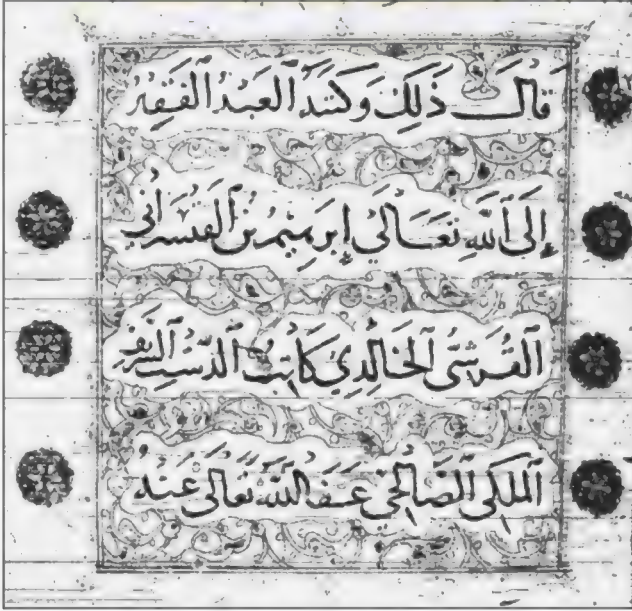 قال ذلك وكتبه العبد الفقير
إلى الله تعالى إبراهيم بن القيسراني
القرشي الخالدي كاتب الدست الشريف
الملكي الصالحي عفا الله تعالى عنه